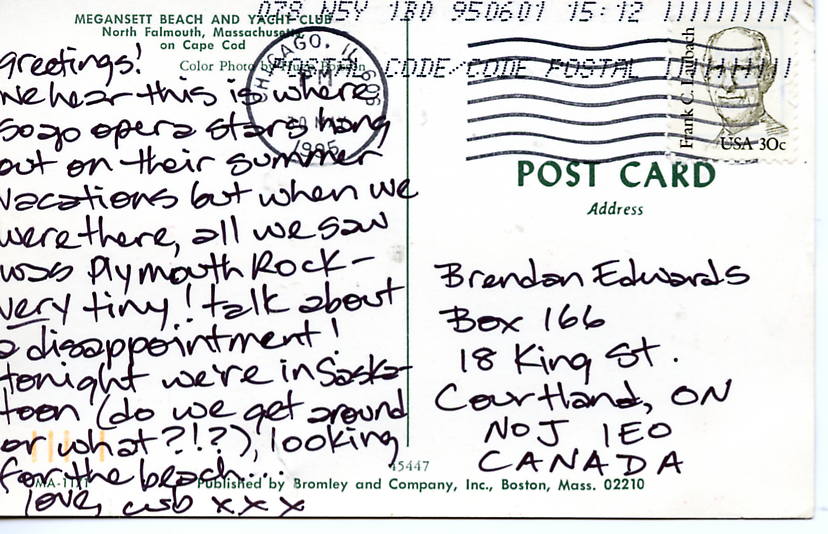 MEGANSETT BEACH AND YACHT CLUB
North Falmouth, Massachusetts
on Cape Cod
Color Photo by
greetings!
we hear this is where
soap opera stars hang
out on their summer
vacations but when we
were there, all we saw
was Plymouth Rock-
very tiny! talk about
a disappointment!
tonight we're in Saska-
toon (do we get around
or what?!?), looking
for the beach...
love, cub x x x
Published by Bromley and Company, Inc., Boston, Mass. 02210
45447
078 N5Y 1B0 950601 15:12
CODE/CODE POSTAL
CHICAGO, IL 606
PM
1995
Frank C. Laubach
USA 30c
POST CARD
Address
Brendan Edwards
Box 166
18 King St.
Courtland, ON
N0J 1E0
CANADA